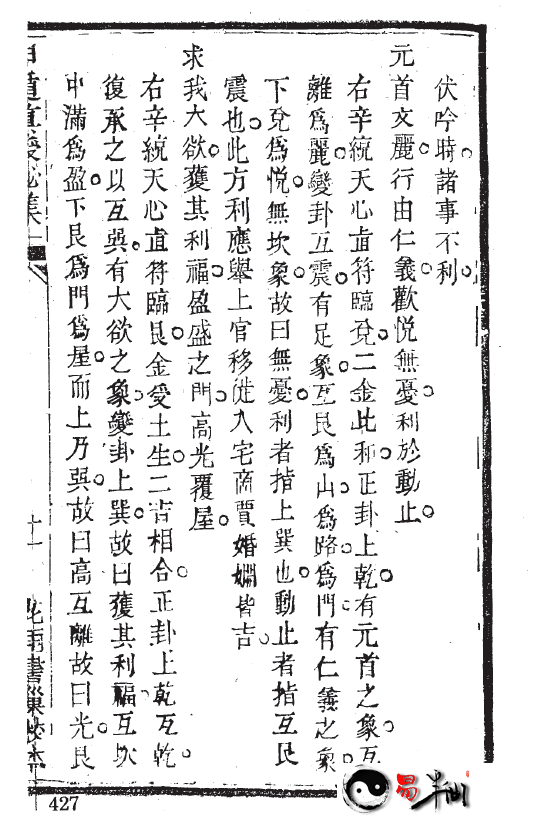 伏吟時。諸事不利。
元首文麗。行由仁義。歡悅無憂。利於動止。
右辛統天心直符臨兌。二金比和。正卦上乾。有元首之象。互
離為麗。變卦互震。有足象。互艮為山。為路。為門。有仁義之象。
下兌為悅。無坎象。故曰無憂。利者指上巽也。動止者指互艮
震也。此方利應舉上官移徙入宅商賈婚姻皆吉。
求我大欲。獲其利福。盈盛之門。高光覆屋。
右辛統天心直符臨艮。金受土生。二吉相合。正卦上乾互乾
復承之以互巽。有大欲之象。變卦上巽。故曰獲其利福。互坎
中滿為盈。下艮為門為屋。而上乃巽。故曰高。互離故曰光。艮
十一
427
易半仙